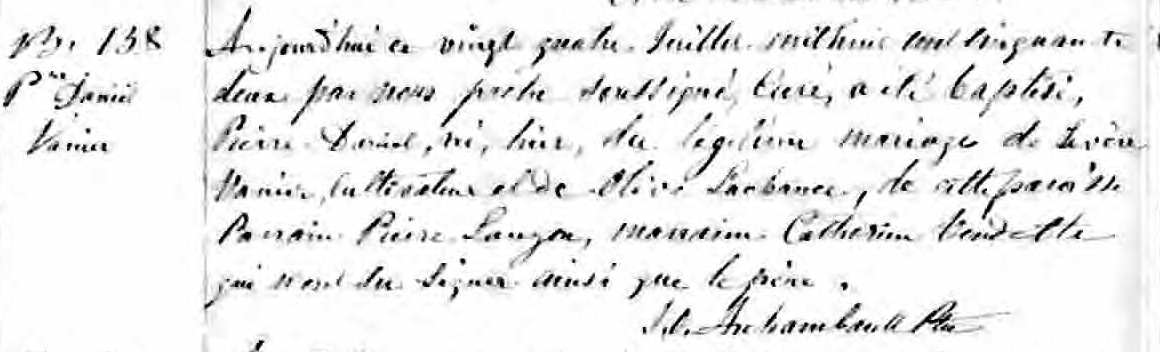 B. 138
Prre Daniel
Vanier
Aujourd'hui ce vingt quatre Juillet mil huit cent cinquante
deux par nous prêtre soussigné, Curé, a été baptisé,
Pierre Daniel, né, hier, du légitime mariage de Sévère
Vanier, Cultivateur et de Olive Laabance, de cette paroisse
Parrain Pierre Lauzon, marraine Catherine Vendette
qui n'ont su signer ainsi que le père.
Archambault Ptre